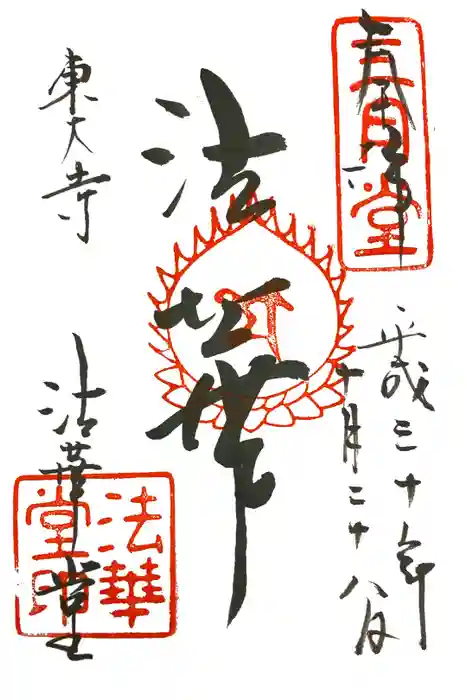 奉拝
三月堂
平成三十年
十月二十八日
法華
東大寺
法華堂
法華
堂印